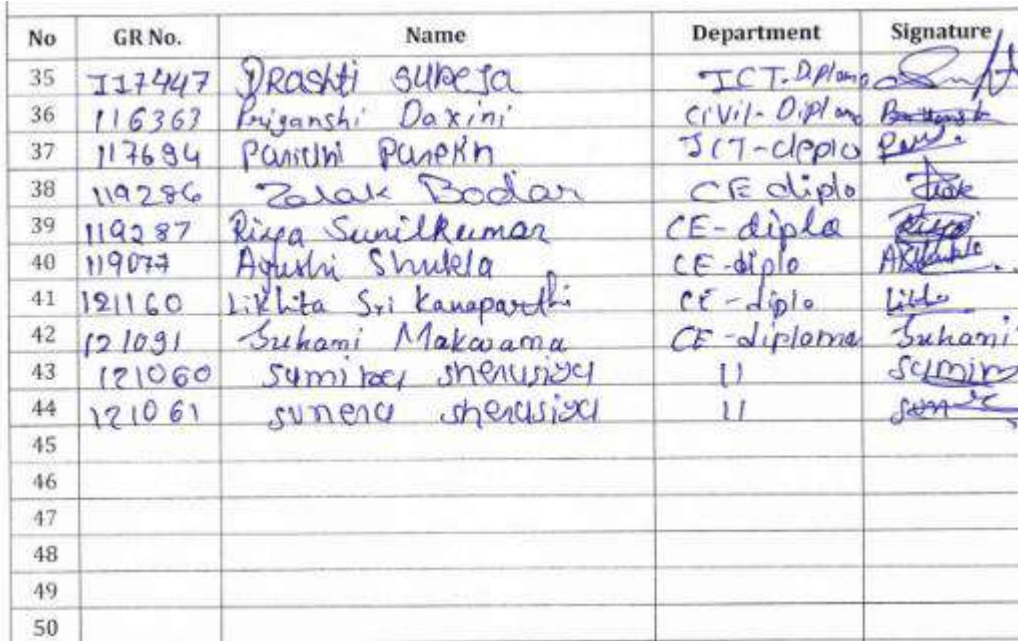 No GR No. Name Department Signature
35 117447 Drashti sureja ICT-Diploma
36 116363 Priyanshi Daxini Civil-Diploma
37 117694 ICT-deplo
38 119286 Zalak Bodar CE diplo Zalak
39 119287 Riya Sunilkumar CE-diplo Riya
40 119077 Ayushi Shukla CE-diplo AShukla
41 121160 Likhita Sri Kanaparthi CE-diplo
42 121091 Suhami Makwama CE-diploma Suhami
43 121060 sherasiya 11
44 121061 sunera sherasiya 11
45
46
47
48
49
50